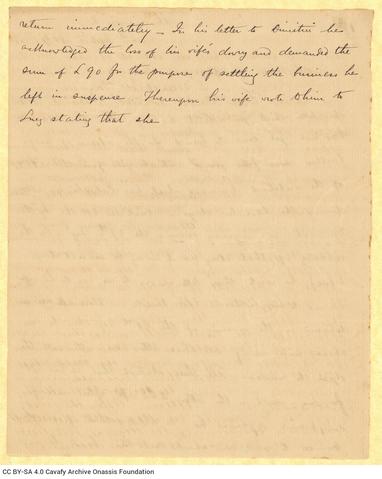 return immediately _ In his letter to Dimitri he
acknowledged the loss of his wife's dowry and demanded the
sum of £ 90 for the purpose of settling the business he
left in suspense. Thereupon his wife wrote to him to
Suez stating that she
CC BY-SA 4.0 Cavafy Archive Onassis Foundation